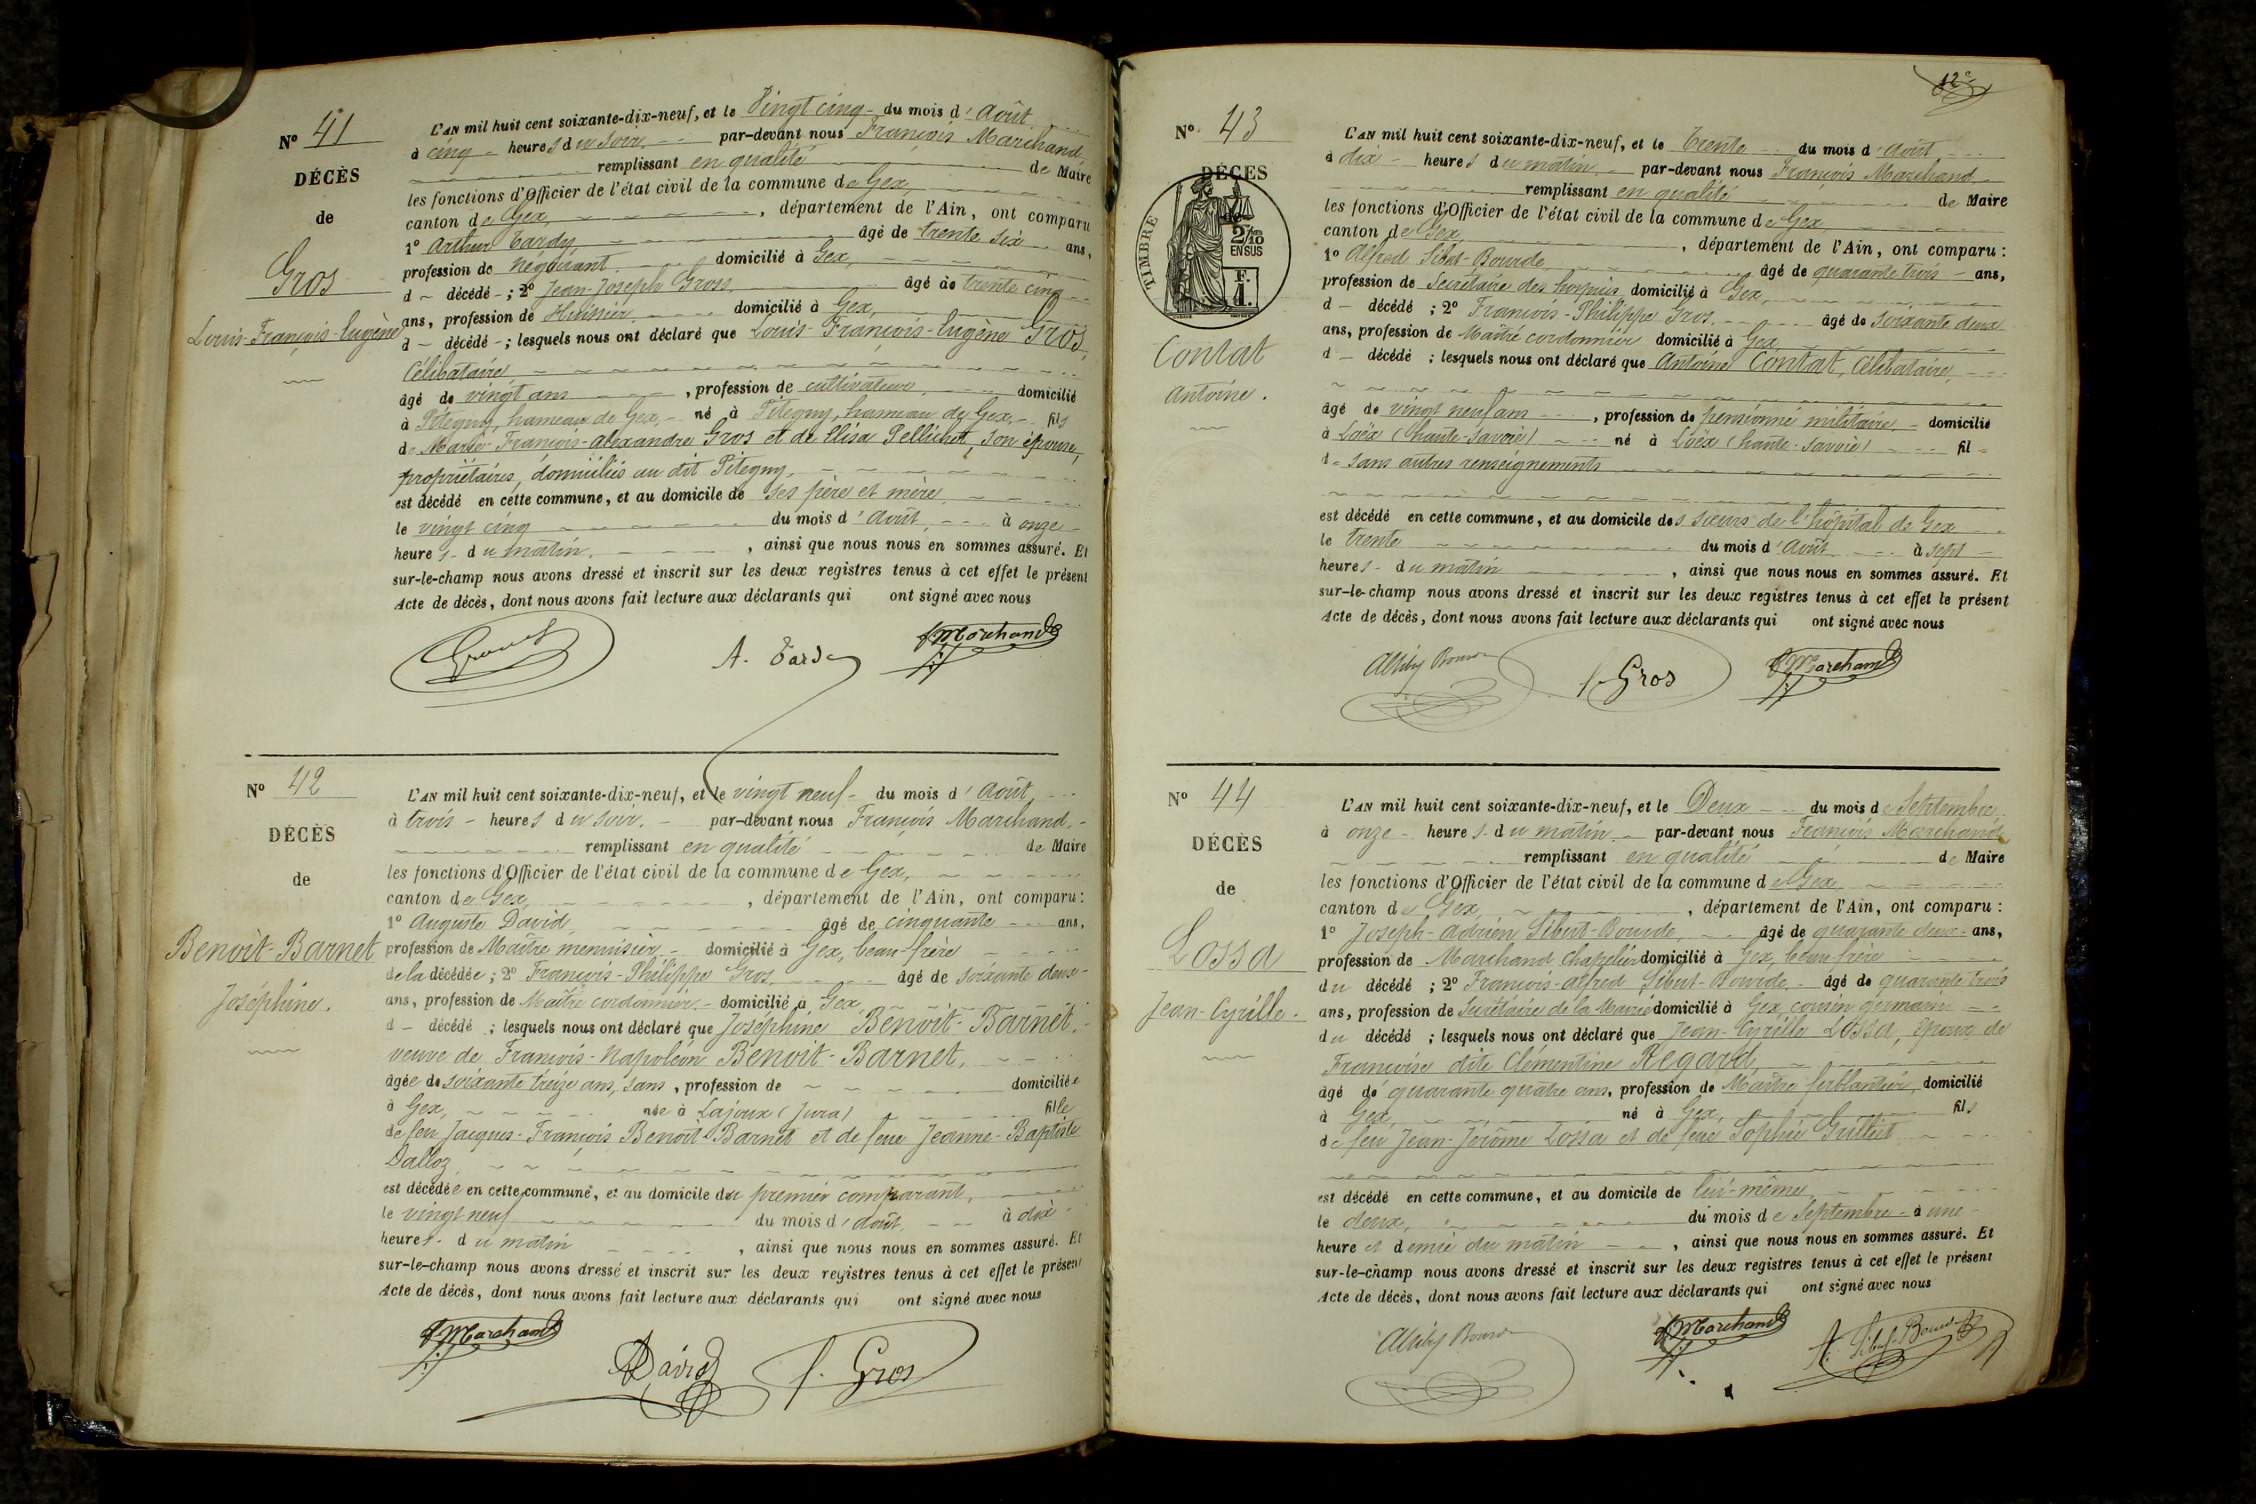 N° 41
DÉCÈS
de
Gros
Louis-François-Eugène
L'AN mil huit cent soixante-dix-neuf, et le Vingt cinq du mois d'Août
à cinq heures du soir par-devant nous François Marchand
remplissant en qualité de Maire
les fonctions d'Officier de l'état civil de la commune de Gex,
canton de Gex, , département de l'Ain, ont comparu
1° Arthur Tardy, âgé de trente six ans,
profession de négociant domicilié à Gex,
d décédé ; 2° Jean-Joseph Gros âgé de trente cinq
ans, profession de domicilié à Gex,
d décédé ; lesquels nous ont déclaré que Louis-François-Eugène Gros,
Célibataire
âgé de vingt ans , profession de cultivateur, domicilié
à Pitegny, hameau de Gex, né à Pitegny, hameau de Gex, fils
de Marie-François-alexandre Gros et de Elisa Pellichet, son épouse,
propriétaires, domiciliés au dit Pitegny,
est décédé en cette commune, et au domicile de ses père et mère
le vingt cinq du mois d'Août à onze
heures du matin. , ainsi que nous nous en sommes assuré. Et
sur-le-champ nous avons dressé et inscrit sur les deux registres tenus à cet effet le présent
Acte de décès, dont nous avons fait lecture aux déclarants qui ont signé avec nous
A. Tardy
F Marchand
N° 42
DÉCÈS
de
Benoit-Barnet
Joséphine.
L'AN mil huit cent soixante-dix-neuf, et le vingt neuf du mois d'Août
à trois heures du soir. par-devant nous François Marchand,
remplissant en qualité de Maire
les fonctions d'Officier de l'état civil de la commune de Gex,
canton de Gex , département de l'Ain, ont comparu :
1° Auguste David, âgé de cinquante ans,
profession de Maître menuisier domicilié à Gex, beau-frère
de la décédée ; 2° François-Philippe Gros, âgé de soixante deux
ans, profession de Maître cordonnier domicilié à Gex
d décédé ; lesquels nous ont déclaré que Joséphine Benoit-Barnet,
veuve de François-Napoléon Benoit-Barnet,
âgée de soixante treize ans, sans , profession de domiciliée
à Gex, née à Lajoux (Jura) fille
de feu Jacques-François Benoit-Barnet et de feue Jeanne-Baptiste
Dalloz
est décédée en cette commune, et au domicile du premier comparant,
le vingt neuf du mois d'août à dix
heures du matin , ainsi que nous nous en sommes assuré. Et
sur-le-champ nous avons dressé et inscrit sur les deux registres tenus à cet effet le présent
Acte de décès, dont nous avons fait lecture aux déclarants qui ont signé avec nous
F Marchand
David
f. Gros
12e
N° 43
DÉCÈS
de
TIMBRE
2/10
EN SUS
F.
1.
Contat
Antoine.
L'AN mil huit cent soixante-dix-neuf, et le trente du mois d'Août
à dix heures du matin par-devant nous François Marchand
remplissant en qualité de Maire
les fonctions d'Officier de l'état civil de la commune de Gex
canton de Gex , département de l'Ain, ont comparu :
1° Alfred Sibut-Bourde âgé de quarante trois ans,
profession de Secrétaire des hospices domicilié à Gex,
d décédé ; 2° François-Philippe Gros âgé de soixante deux
ans, profession de Maître cordonnier domicilié à Gex
d décédé ; lesquels nous ont déclaré que Antoine Contat, Célibataire,
âgé de vingt neuf ans , profession de pensionné militaire, domicilié
à Loëx (haute-Savoie) né à Loëx (haute-Savoie) fil
d sans autres renseignements
est décédé en cette commune, et au domicile des sœurs de l'hôpital de Gex
le trente du mois d'Août à sept
heures du matin , ainsi que nous nous en sommes assuré. Et
sur-le-champ nous avons dressé et inscrit sur les deux registres tenus à cet effet le présent
Acte de décès, dont nous avons fait lecture aux déclarants qui ont signé avec nous
f. Gros
F Marchand
N° 44
DÉCÈS
de
Lossa
Jean-Cyrille.
L'AN mil huit cent soixante-dix-neuf, et le Deux du mois de Septembre
à onze heures du matin par-devant nous François Marchand
remplissant en qualité de Maire
les fonctions d'Officier de l'état civil de la commune de Gex
canton de Gex, , département de l'Ain, ont comparu :
1° Joseph-Adrien Sibut-Bourde, âgé de quarante deux ans,
profession de Marchand chapelier domicilié à Gex, beau-frère
du décédé ; 2° François-alfred Sibut-Bourde âgé de quarante trois
ans, profession de Secrétaire de la Mairie domicilié à Gex, cousin germain
du décédé ; lesquels nous ont déclaré que Jean-Cyrille Lossa, époux de
Françoise dite Clémentine Regard,
âgé de quarante quatre ans, profession de Maître ferblantier, domicilié
à Gex, né à Gex, fils
de feu Jean-Jérôme Lossa et de feue Sophie
est décédé en cette commune, et au domicile de lui-même
le deux, du mois de Septembre à une
heure et demie du matin , ainsi que nous nous en sommes assuré. Et
sur-le-champ nous avons dressé et inscrit sur les deux registres tenus à cet effet le présent
Acte de décès, dont nous avons fait lecture aux déclarants qui ont signé avec nous
F Marchand
A. Sibut Bourde